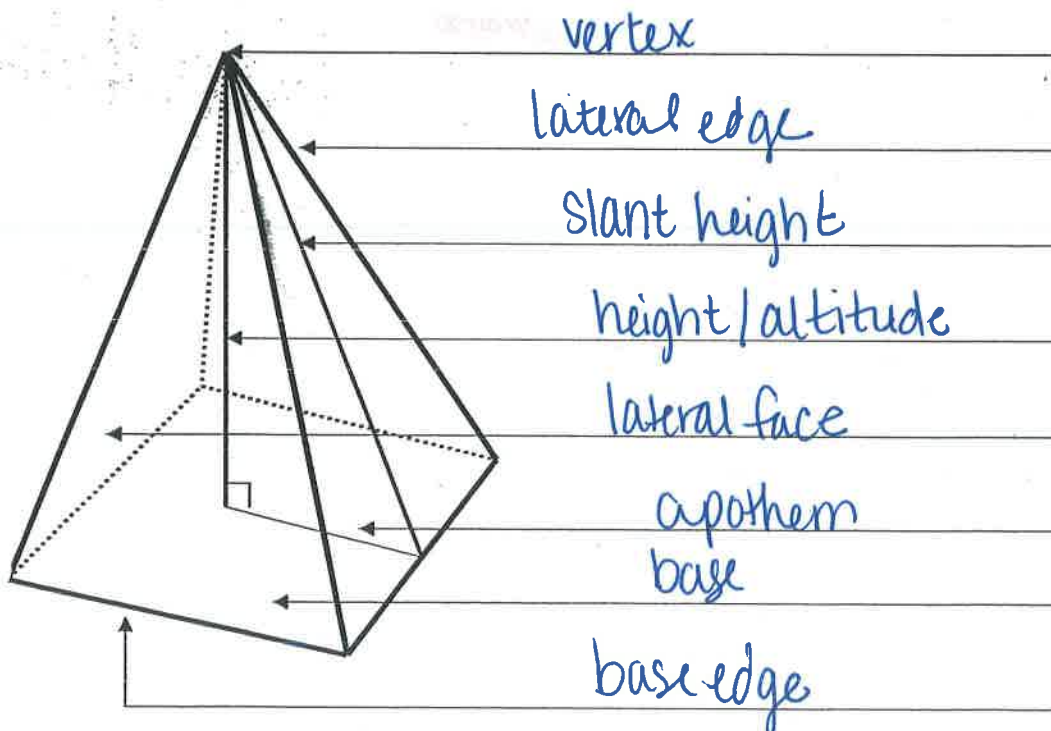 vertex
lateral edge
slant height
height/altitude
lateral face
apothem
base
base edge